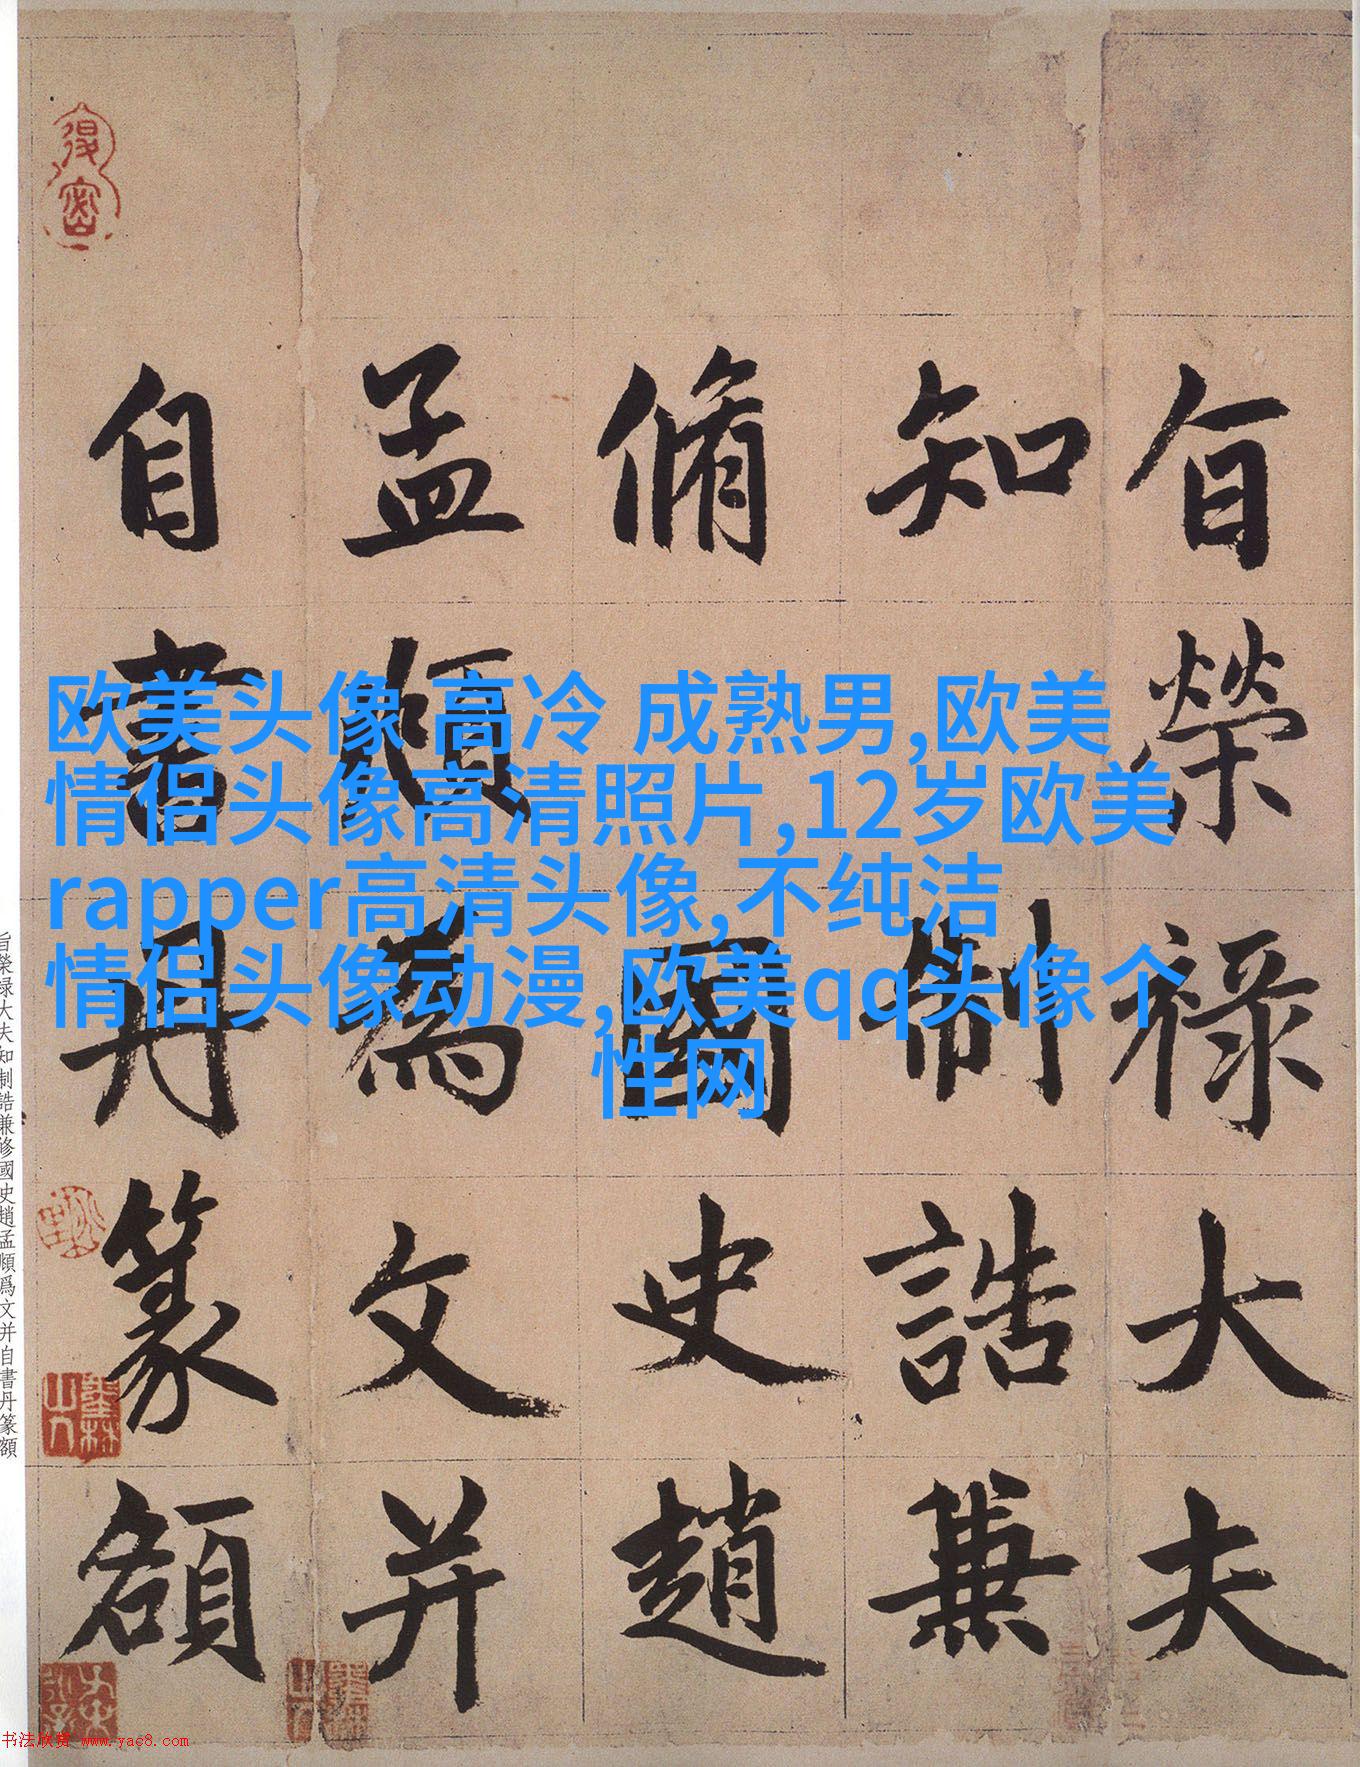 旨榮祿大夫
知制誥兼
脩國史趙
孟頫為文并
自書丹篆額
欧美头像 高冷 成熟男,欧美
情侣头像高清照片,12岁欧美
rapper高清头像,不纯洁
情侣头像动漫,欧美qq头像个
性网
旨榮禄大夫知制誥兼修國史趙孟頫爲文并自書丹篆額
书法欣赏 www.yac8.com